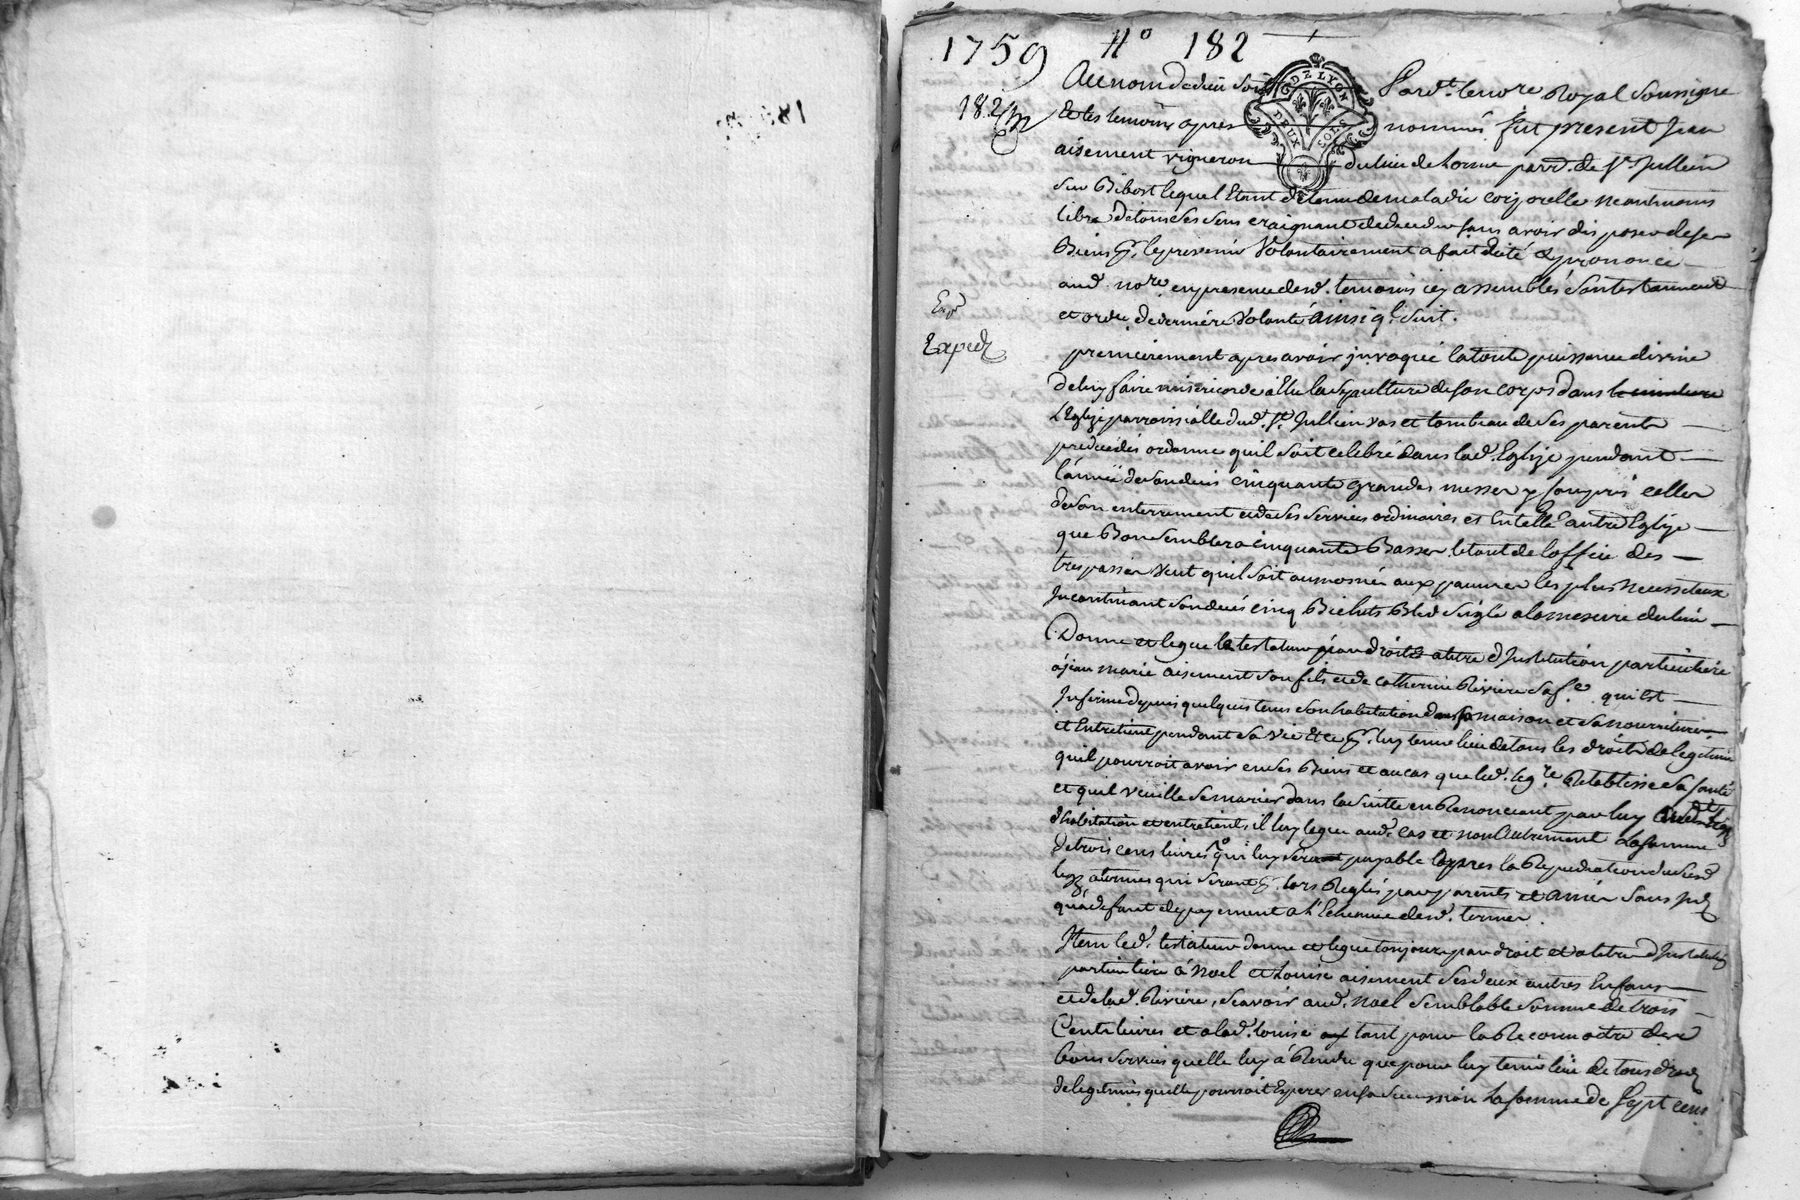 1759 N° 182
Au nom de dieu soit Pard.t le no.re Royal soussigné
182
Et les temoins apres nommés fut present Jean
aisement vigneron du lieu de horme parr. de St Jullien
sur Bibost lequel Etant detenu de maladie corporelle neantmoins
libre de tous ses sens craignant de deceder sans avoir disposer de ses
Biens pr. le prevenir volontairement a fait dicté & prononcé
aud. no.re en presence desd. temoins icy assemblés son testament
et ordce de derniere volonté ainsi ql. suit.
Exp
Exped
premierement apres avoir invoqué la toute puissance divine
de luy faire misericorde Elu la sepulture de son corps dans le cimetiere
L'Eglize parroissialle dud. St. Jullien vas et tombeau de ses parents
predecedés ordonne quil soit celebré dans lad. Eglize pendant
l'année de son deces cinquante grandes messes y compris celles
de son enterrement et de ses services ordinaires et en telle autre Eglize
que Bon semblera cinquante Basses le tout de l'office des
trepasser veut quil soit aumosné aux pauvres les plus necessiteux
Incontinant son deces cinq Bichets Bled seigle a la mesure du lieu
Donne et legue le testateur par droit et a titre d'Institution particuliere
à jean marie aisement son fils et de catherine Riviere sa fe. qui Est
Infirme depuis quelques tems son habitation dans sa maison et sa nourriture
et Entretient pendant sa vie Et ce pr. luy tenir lieu de tous les droits de legitime
quil pourroit avoir en ses Biens et au cas que led. leg.re Retablisse sa santé
et quil veuille se marier dans la suitte en Renonceant par luy aud.
d'habitation et entretients, il luy legue aud. cas et non autrement La somme
de trois cens livres qui luy sera payable apres la Repudiation dud.
leg. a termes qui seront pr. lors Reglés par parents et amis sans
qu'à defaut de payement a l'Echeance desd. termes
Item led. testateur donne et legue toujours par droit et a titre d'Institution
particuliere à Noel et Louise aisement ses deux autres Enfans
et de lad. Riviere, scavoir aud. Noel semblable somme de trois
Cents livres et a lad. Louise tant pour la Reconnoitre des
bons services quelle luy à Rendu que pour luy tenir lieu de tous droits
de legitimes quelle pourroit Esperer en sa succession La somme de sept cens
G DE LYON
DEUX SOLS